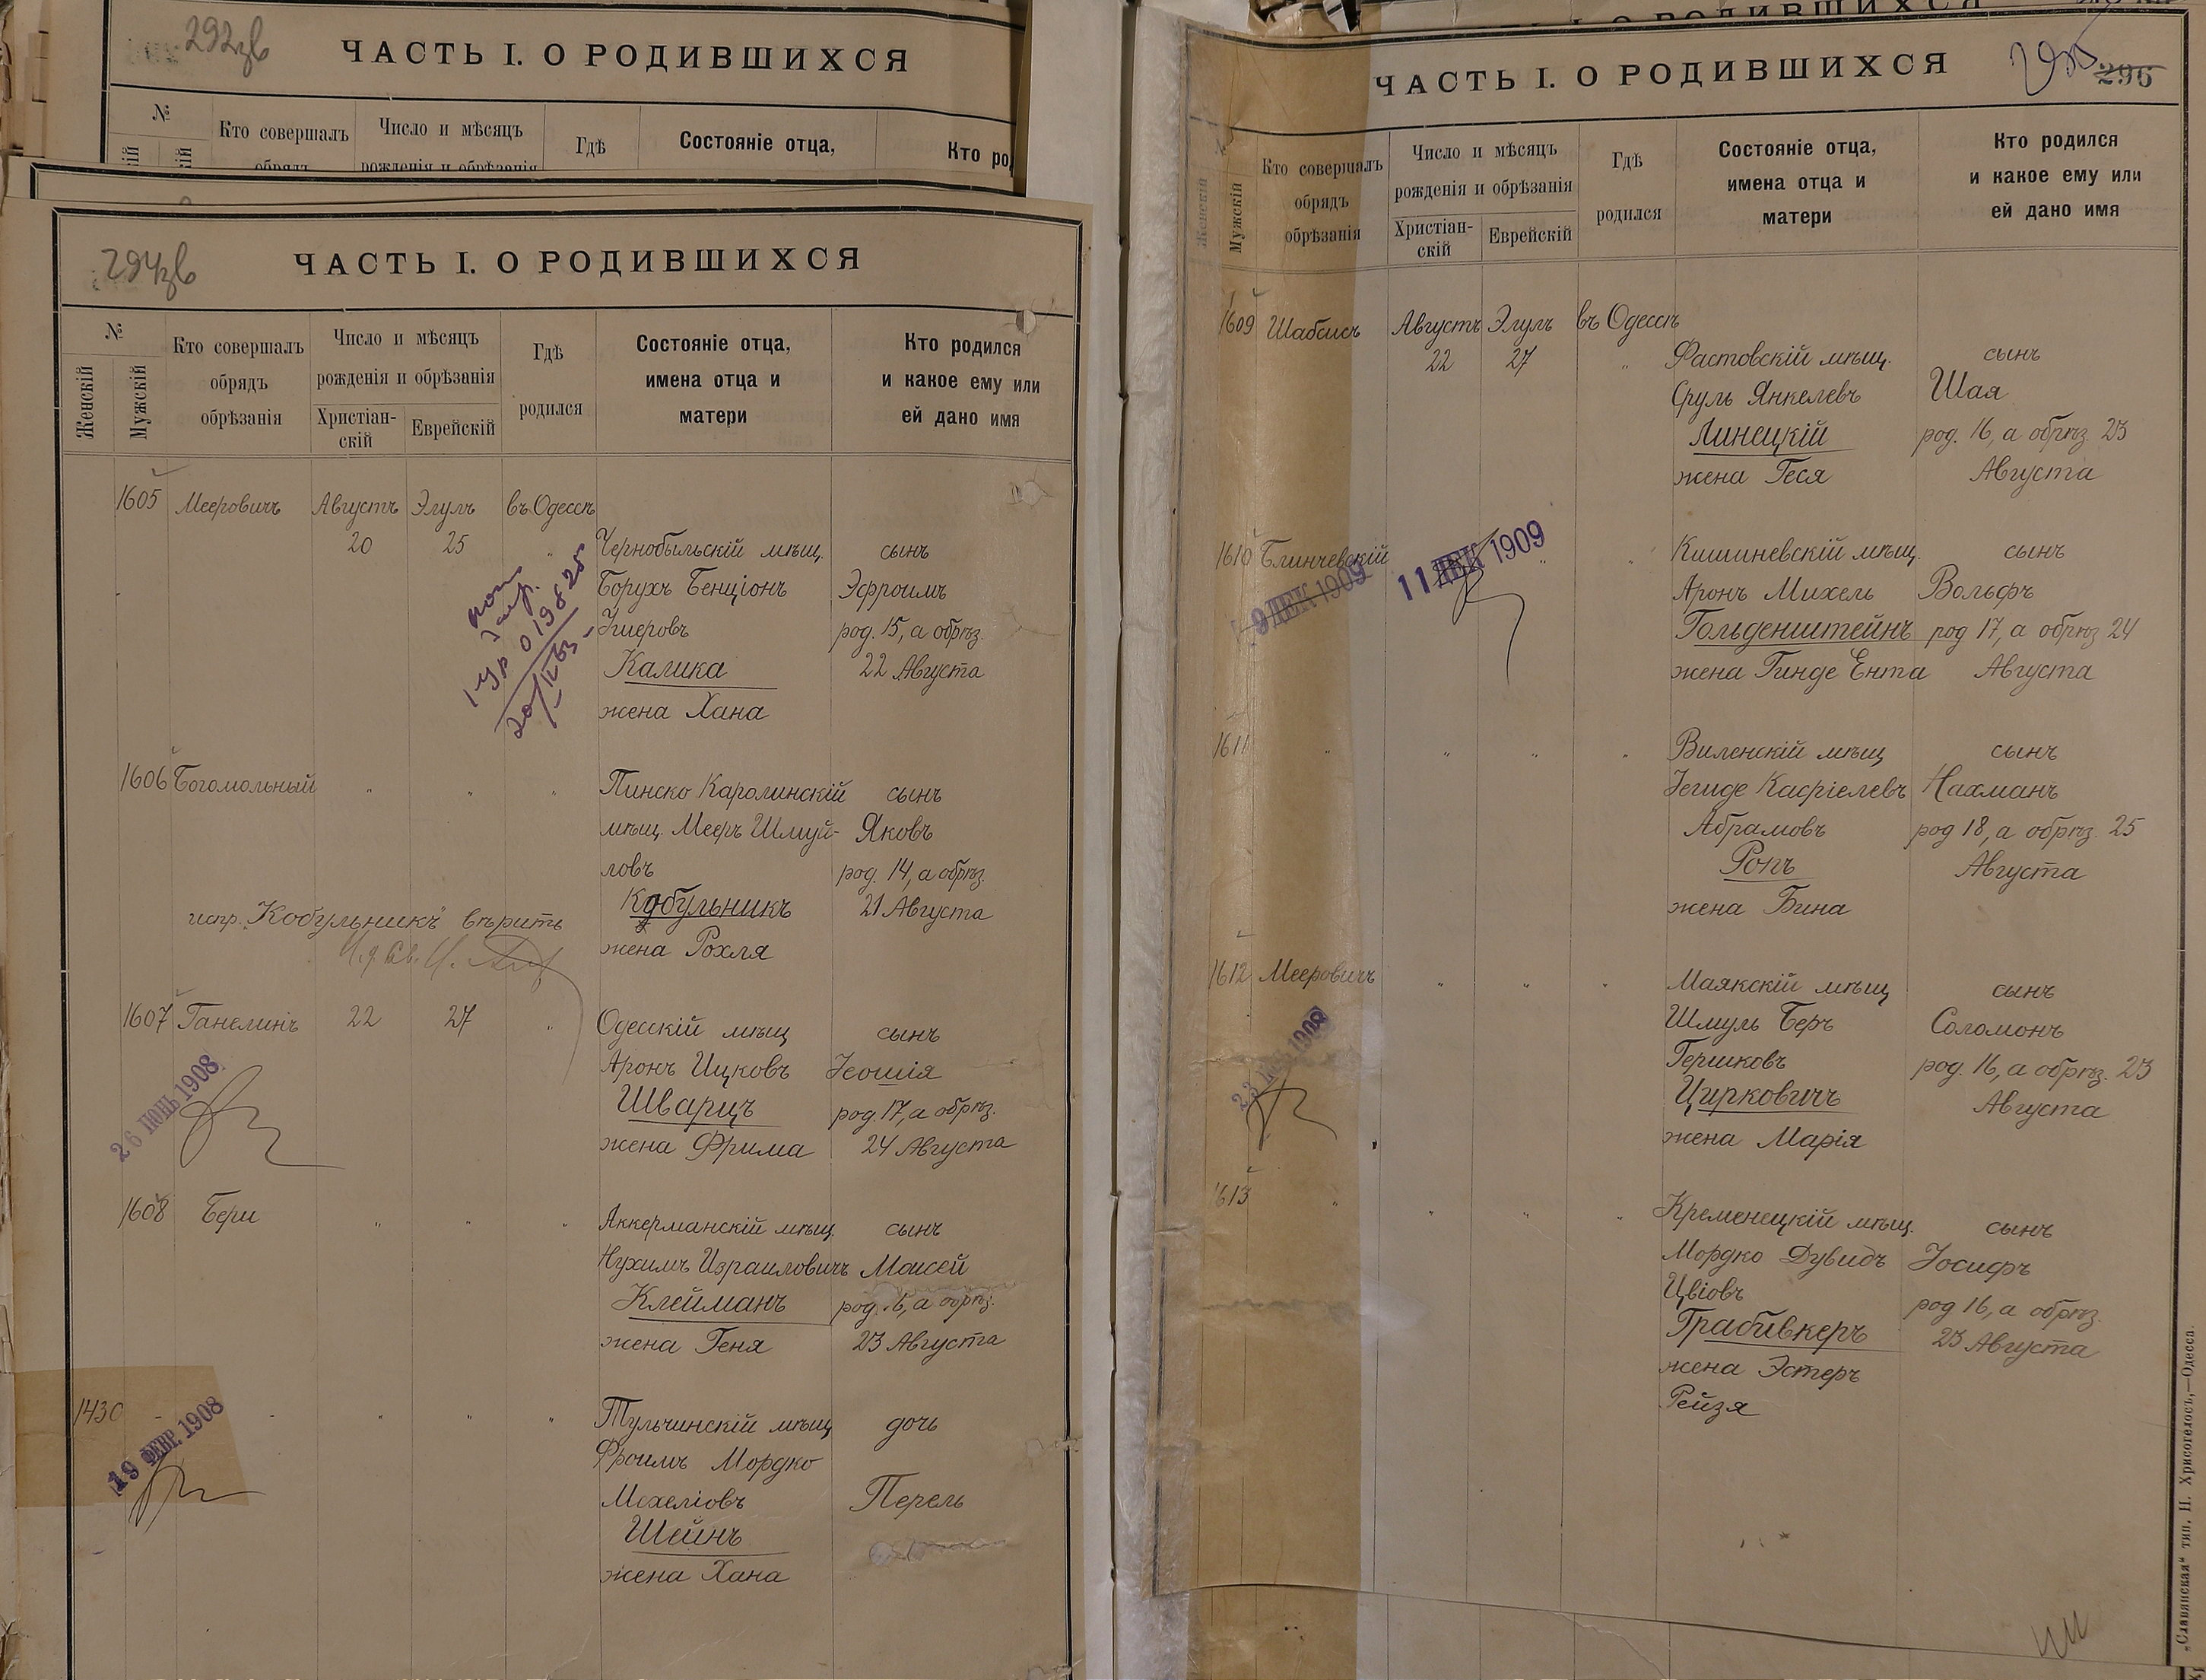 292зв
ЧАСТЬ I. О РОДИВШИХСЯ
№
Кто совершалъ
Число и мѣсяцъ
Гдѣ
Состояніе отца,
обрядъ
рожденія и обрѣзанія
294зв
ЧАСТЬ I. О РОДИВШИХСЯ
№
Женскій
Мужскій
Кто совершалъ
обрядъ
обрѣзанія
Число и мѣсяцъ
рожденія и обрѣзанія
Христіан-
скій
Еврейскій
Гдѣ
родился
Состояніе отца,
имена отца и
матери
Кто родился
и какое ему или
ей дано имя
1605 Мееровичъ Августъ Элулъ въ Одессѣ
20 25 " Чернобыльскій мѣщ. сынъ
Борухъ Бенціонъ Эфроимъ
Игиеровъ род. 15, а обрѣз.
Калика 22 Августа
жена Хана
1606 Богомольный " " " Пинско Каролинскій сынъ
мѣщ. Мееръ Шмуй- Яковъ
ловъ род. 14, а обрѣз.
Кобульникъ 21 Августа
испр. „Кобульникъ" вѣрить
жена Рохля
1607 Ганелинъ 22 27 " Одесскій мѣщ сынъ
Аронъ Ицковъ Іеошія
Шварцъ род. 17, а обрѣз.
жена Фрима 24 Августа
26 ІЮНЬ 1908
1608 Бери " " " Аккерманскій мѣщ. сынъ
Нухимъ Израиловичъ Моисей
Клейманъ род. 16, а обрѣз.
жена Геня 23 Августа
1430 - - " " " Тульчинскій мѣщ дочь
Фроимъ Мордко
Мехеліовъ Перель
Шейнъ
жена Хана
19 ФЕВР. 1908
ЧАСТЬ I. О РОДИВШИХСЯ
295
296
Женскій
Мужскій
Кто совершалъ
обрядъ
обрѣзанія
Число и мѣсяцъ
рожденія и обрѣзанія
Христіан-
скій
Еврейскій
Гдѣ
родился
Состояніе отца,
имена отца и
матери
Кто родился
и какое ему или
ей дано имя
1609 Шабсисъ Августъ Элулъ въ Одессѣ
22 27 " Фастовскій мѣщ. сынъ
Сруль Янкелевъ Шая
Линецкій род. 16, а обрѣз. 23
жена Геся Августа
1610 Блинчевскій " " Кишиневскій мѣщ. сынъ
9 ДЕК 1909
11 ДЕК 1909
Аронъ Михель Вольфъ
Гольденштейнъ род 17, а обрѣз 24
жена Гинде Ента Августа
1611 " " " " Виленскій мѣщ сынъ
Іегиде Касріелевъ Нахманъ
Абрамовъ род 18, а обрѣз. 25
Ропъ Августа
жена Бина
1612 Мееровичъ " " " Маякскій мѣщ сынъ
Шмуль Беръ Соломонъ
Гершковъ род. 16, а обрѣз. 23
Цирковичъ Августа
жена Марія
1613 " " " " Кременецкій мѣщ. сынъ
Мордко Дувидъ Іосифъ
Цвіовъ род 16, а обрѣз.
Грабивкеръ 23 Августа
жена Эстеръ
Рейзя
„Славянская" тип. Н. Хрисогелосъ,—Одесса.